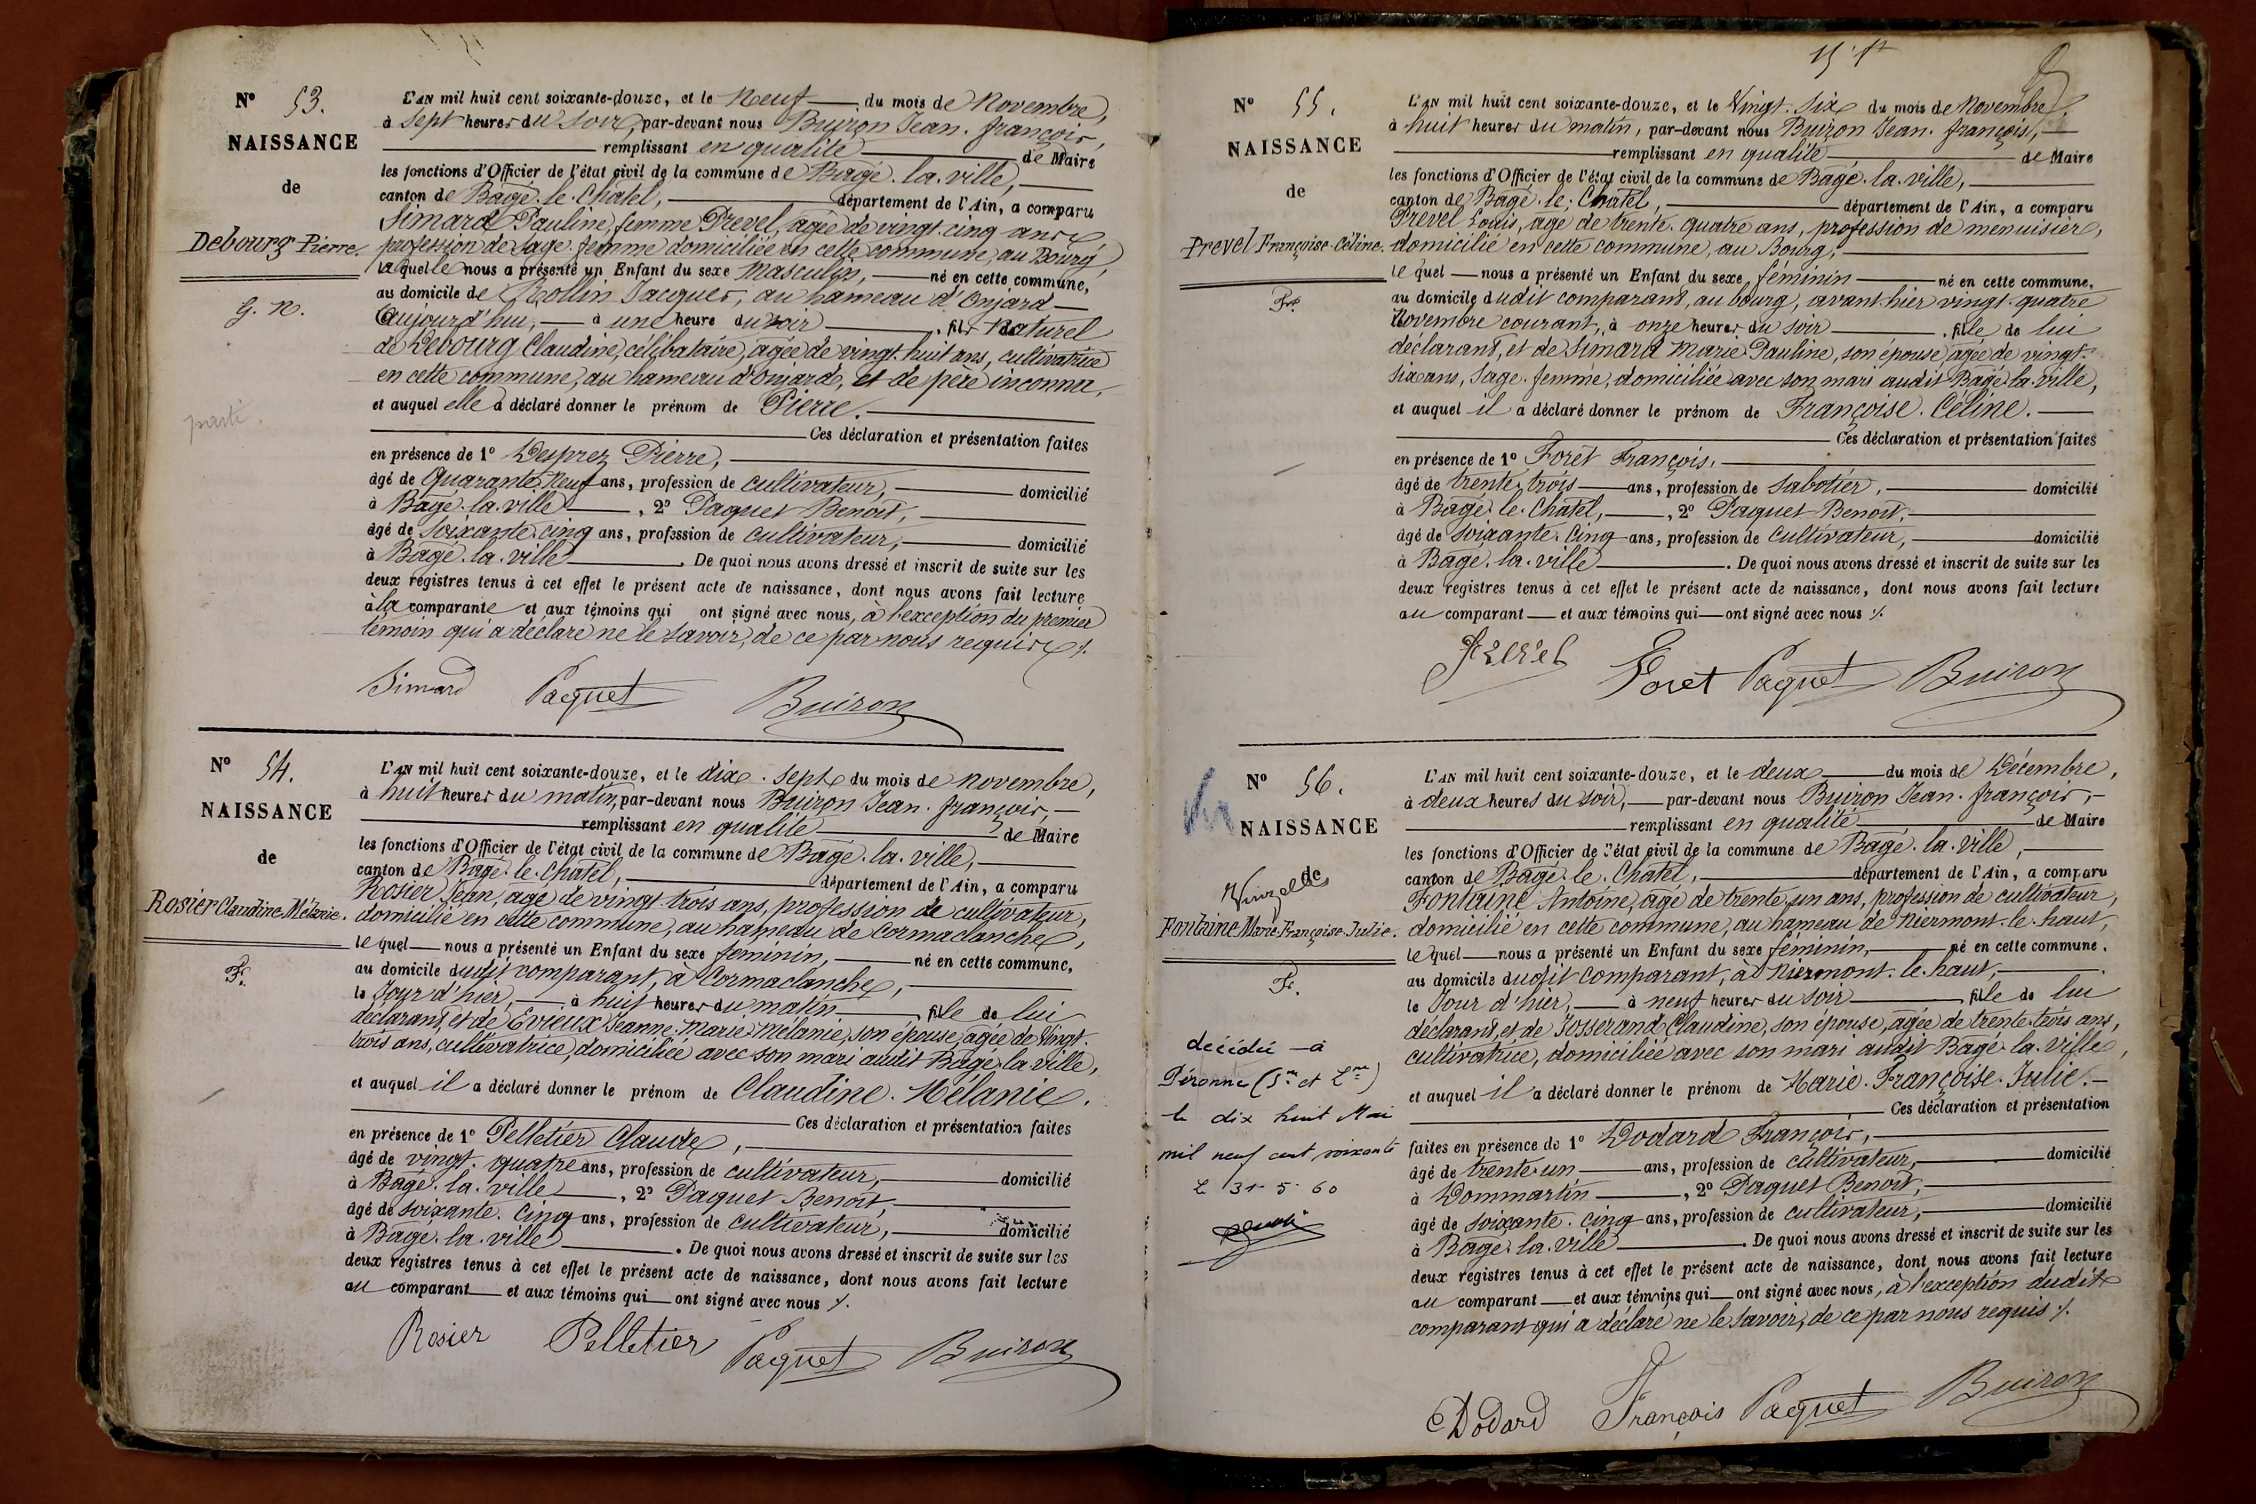 Nº 53.
NAISSANCE
de
Debourg Pierre.
G. N.
parti.
L'AN mil huit cent soixante-douze, et le Neuf du mois de Novembre,
à sept heures du soir, par-devant nous Buiron Jean. françois,
remplissant en qualité de Maire
les fonctions d'Officier de l'état civil de la commune de Bagé. la. ville,
canton de Bagé. le. Chatel, département de l'Ain, a comparu
Simard Pauline, femme Prevel, agée de vingt. cinq ans,
profession de sage. femme domiciliée en cette commune, au Bourg,
laquelle nous a présenté un Enfant du sexe masculin, né en cette commune,
au domicile de Rollin Jacques, au hameau d'Onjard
aujourd'hui, à une heure du soir, fils naturel
de Debourg Claudine, célibataire, agée de vingt. huit ans, cultivatrice
en cette commune, au hameau d'Onjard, et de père inconnu,
et auquel elle a déclaré donner le prénom de Pierre.
Ces déclaration et présentation faites
en présence de 1º Desprez Pierre,
âgé de Quarante. Neuf ans, profession de cultivateur, domicilié
à Bagé. la. ville, 2º Paquet Benoit,
âgé de soixante. cinq ans, profession de cultivateur, domicilié
à Bagé. la. ville. De quoi nous avons dressé et inscrit de suite sur les
deux registres tenus à cet effet le présent acte de naissance, dont nous avons fait lecture
à la comparante et aux témoins qui ont signé avec nous, à l'exception du premier
témoin qui a déclaré ne le savoir, de ce par nous requis ./.
Simard Paquet Buiron
Nº 54.
NAISSANCE
de
Rosier Claudine. Mélanie.
F.
L'AN mil huit cent soixante-douze, et le dix. sept du mois de novembre,
à huit heures du matin, par-devant nous Buiron Jean. françois,
remplissant en qualité de Maire
les fonctions d'Officier de l'état civil de la commune de Bagé. la. ville,
canton de Bagé. le. Chatel, département de l'Ain, a comparu
Rosier Jean, agé de vingt. trois ans, profession de cultivateur,
domicilié en cette commune, au hameau de Cormaclanche,
lequel nous a présenté un Enfant du sexe féminin, né en cette commune,
au domicile dudit comparant, à Cormaclanche,
le Jour d'hier, à huit heures du matin, fille de lui
déclarant, et de Evieux Jeanne. Marie. Mélanie, son épouse, agée de Vingt.
trois ans, cultivatrice, domiciliée avec son mari audit Bagé. la ville,
et auquel il a déclaré donner le prénom de Claudine. Mélanie.
Ces déclaration et présentation faites
en présence de 1º Pelletier Claude,
âgé de vingt. quatre ans, profession de cultivateur, domicilié
à Bagé. la. ville, 2º Paquet Benoit,
âgé de soixante. cinq ans, profession de cultivateur, domicilié
à Bagé. la. ville. De quoi nous avons dressé et inscrit de suite sur les
deux registres tenus à cet effet le présent acte de naissance, dont nous avons fait lecture
au comparant et aux témoins qui ont signé avec nous ./.
Rosier Pelletier Paquet Buiron
Nº 55.
NAISSANCE
de
Prevel Françoise. Céline.
F.
L'AN mil huit cent soixante-douze, et le Vingt. Six du mois de Novembre,
à huit heures du matin, par-devant nous Buiron Jean. françois,
remplissant en qualité de Maire
les fonctions d'Officier de l'état civil de la commune de Bagé. la. ville,
canton de Bagé. le. Chatel, département de l'Ain, a comparu
Prevel Louis, agé de trente. quatre ans, profession de menuisier,
domicilié en cette commune, au Bourg,
lequel nous a présenté un Enfant du sexe féminin né en cette commune,
au domicile dudit comparant, au bourg, avant. hier vingt. quatre
Novembre courant, à onze heures du soir, fille de lui
déclarant, et de Simard Marie. Pauline, son épouse, agée de vingt.
six ans, sage. femme, domiciliée avec son mari audit Bagé. la. ville,
et auquel il a déclaré donner le prénom de Françoise. Céline.
Ces déclaration et présentation faites
en présence de 1º Foret François,
âgé de trente. trois ans, profession de sabotier, domicilié
à Bagé. le. Chatel, 2º Paquet Benoit,
âgé de soixante. cinq ans, profession de cultivateur, domicilié
à Bagé. la. ville. De quoi nous avons dressé et inscrit de suite sur les
deux registres tenus à cet effet le présent acte de naissance, dont nous avons fait lecture
au comparant et aux témoins qui ont signé avec nous ./.
Prevel Foret Paquet Buiron
Nº 56.
NAISSANCE
de
Fontaine Marie. Françoise. Julie.
F.
décédée à
Péronne (Sne et Lre)
le dix huit Mai
mil neuf cent soixante
L 31 5 60
L'AN mil huit cent soixante-douze, et le deux du mois de Décembre,
à deux heures du soir, par-devant nous Buiron Jean. françois,
remplissant en qualité de Maire
les fonctions d'Officier de l'état civil de la commune de Bagé. la. ville,
canton de Bagé. le. Chatel, département de l'Ain, a comparu
Fontaine Antoine, agé de trente. un ans, profession de cultivateur,
domicilié en cette commune, au hameau de Niermont. le. haut,
lequel nous a présenté un Enfant du sexe féminin, né en cette commune,
au domicile dudit comparant, à Niermont. le. haut,
le Jour d'hier, à neuf heures du soir, fille de lui
déclarant, et de Josserand Claudine, son épouse, agée de trente. trois ans,
cultivatrice, domiciliée avec son mari audit Bagé. la. ville,
et auquel il a déclaré donner le prénom de Marie. Françoise. Julie.
Ces déclaration et présentation
faites en présence de 1º Dodard François,
âgé de trente. un ans, profession de cultivateur, domicilié
à Dommartin, 2º Paquet Benoit,
âgé de soixante. cinq ans, profession de cultivateur, domicilié
à Bagé. la. ville. De quoi nous avons dressé et inscrit de suite sur les
deux registres tenus à cet effet le présent acte de naissance, dont nous avons fait lecture
au comparant et aux témoins qui ont signé avec nous, à l'exception dudit
comparant qui a déclaré ne le savoir, de ce par nous requis ./.
Dodard François Paquet Buiron